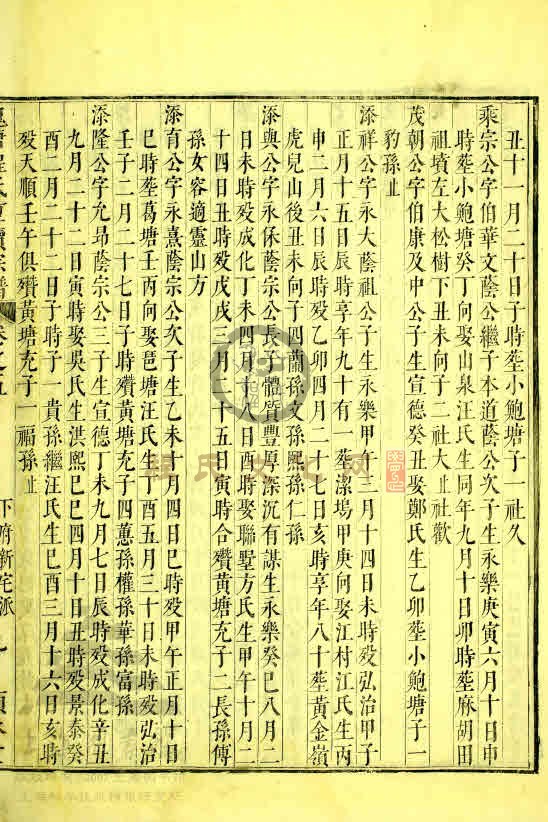 丑十一月二十日子時塟小鮑塘子一社久
乘宗公字伯華文蔭公繼子本道蔭公次子生永樂庚寅六月十日申
時塟小鮑塘癸丁向娶山泉汪氏生同年九月十日卯時塟麻胡田
祖墳左大松樹下丑未向子二社大止社歡
茂朝公字伯康及中公子生宣德癸丑娶鄭氏生乙卯塟小鮑塘子一
豹孫止
添祥公字永大蔭祖公子生永樂甲午三月十四日未時歿弘治甲子
正月十五日辰時享年九十有一塟潔塢甲庚向娶江村江氏生丙
申二月六日辰時歿乙卯四月二十七日亥時享年八十塟黃金嶺
虎兒山後丑未向子四蘭孫文孫熙孫仁孫
添與公字永休蔭宗公長子體質豐厚深沉有謀生永樂癸巳八月二
日未時歿成化丁未四月十八日酉時娶聯墅方氏生甲午十月二
十四日丑時歿戊戌三月二十五日寅時合殯黃塘充子二長孫傳
孫女容適靈山方
添育公字永熹蔭宗公次子生乙未十月四日巳時歿甲午正月十日
巳時塟葛塘壬丙向娶琶塘汪氏生丁酉五月三十日未時歿弘治
壬子二月二十七日子時殯黃塘充子四蕙孫權孫華孫富孫
添隆公字允昂蔭宗公三子生宣德丁未九月七日辰時歿成化辛丑
九月二十二日寅時娶吳氏生洪熙乙巳四月十日丑時歿景泰癸
酉二月二十二日子時子一貴孫繼汪氏生己酉三月十六日亥時
歿天順壬午俱殯黃塘充子一福孫止
卷之五
下府新宅派